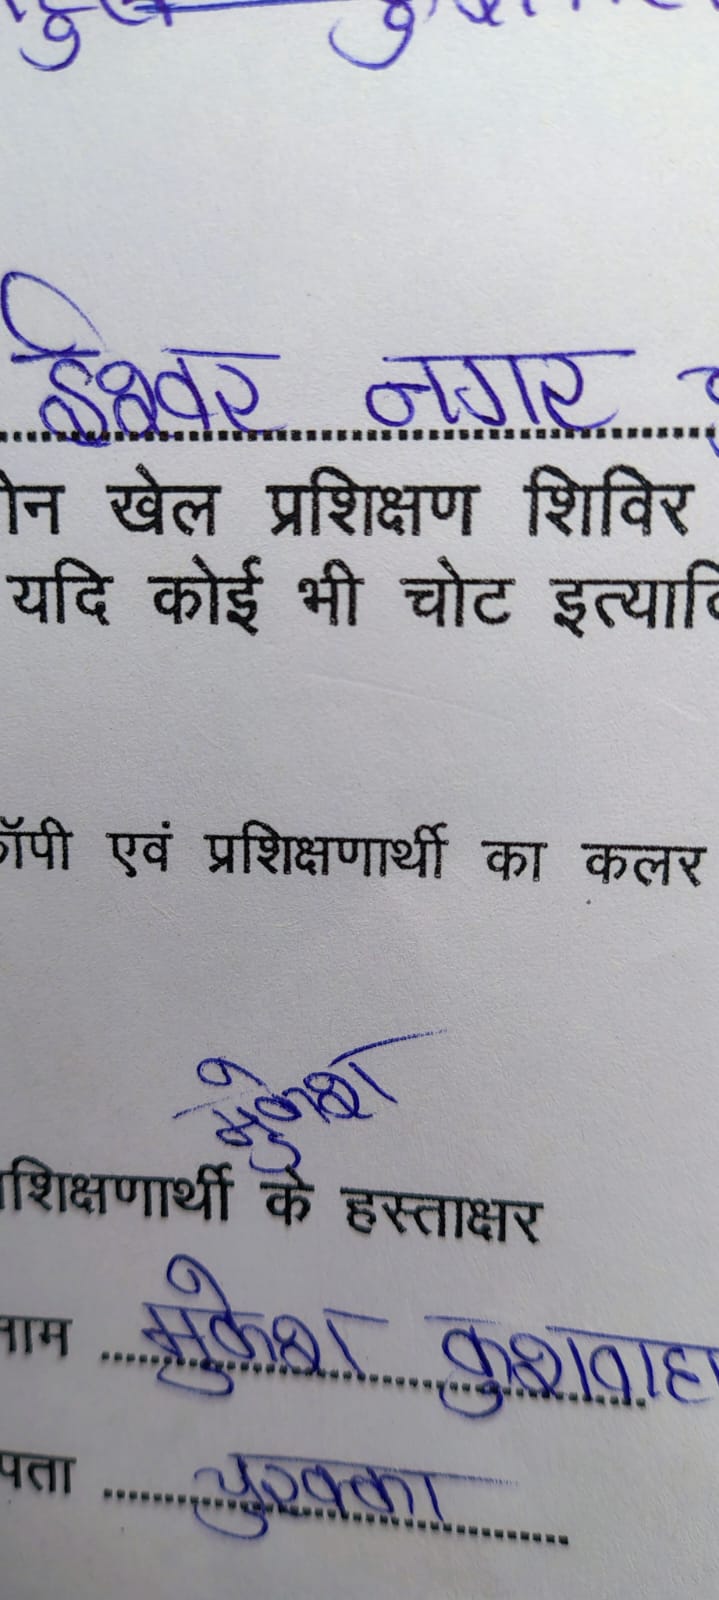 ईश्वर नगर
ीन खेल प्रशिक्षण शिविर
यदि कोई भी चोट इत्यादि
ॉपी एवं प्रशिक्षणार्थी का कलर
मुकेश
शिक्षणार्थी के हस्ताक्षर
नाम मुकेश कुशवाहा
पता